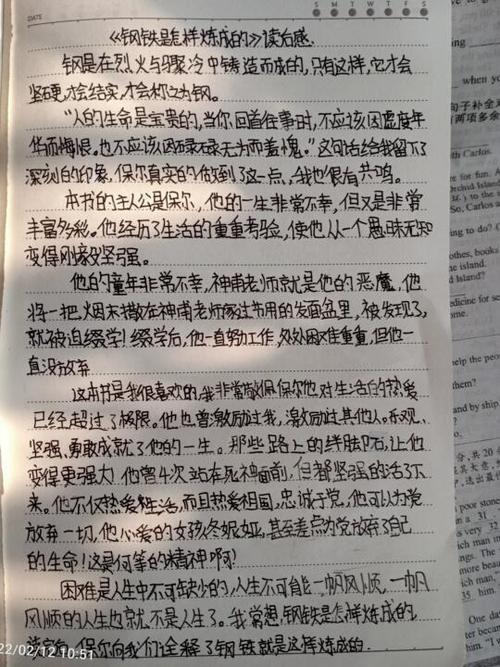 DATE
S M T W T F S
《钢铁是怎样炼成的》读后感
钢是在烈火与骤冷中铸造而成的,只有这样,它才会
坚硬,才会结实,才会称之为钢。
"人的生命是宝贵的,当你回首往事时,不应该因虚度年
华而悔恨。也不应该因碌碌无为而羞愧。"这句话给我留下了
深刻的印象,保尔真实的做到了这一点,我也很有共鸣。
本书的主人公是保尔,他的一生非常不幸,但又是非常
丰富多彩。他经历了生活的重重考验,使他从一个愚昧无知
变得刚毅坚强。
他的童年非常不幸,神甫老师就是他的恶魔,他
将一把烟末撒在神甫老师家过节用的发面盆里,被发现了,
就被迫缀学!缀学后,他一直努力工作,处处困难重重,但他一
直没放弃
这本书是我很喜欢的,我非常敬佩保尔他对生活的热爱
已经超过了极限。他也曾激励过我,激励过其他人。乐观、
坚强、勇敢成就了他的一生。那些路上的绊脚石,让他
变得更强力 他曾4次站在死神面前,但都坚强的活了下
来。他不仅热爱生活,而且热爱祖国,忠诚于党,他可以为党
放弃一切,他小爱的女孩冬妮娅,甚至差点为党放弃了自己
的生命!这是何等的精神啊!
困难是人生中不可缺少的,人生不可能一帆风顺,一帆
风顺的人生也就不是人生了。我常想,钢铁是怎样炼成的,
保尔向我们诠释了钢铁就是这样炼成的.
22/02/12 10:51
when you
with Carlos.
the island.
d Island?
help the peop
them?
and by ship.
One da